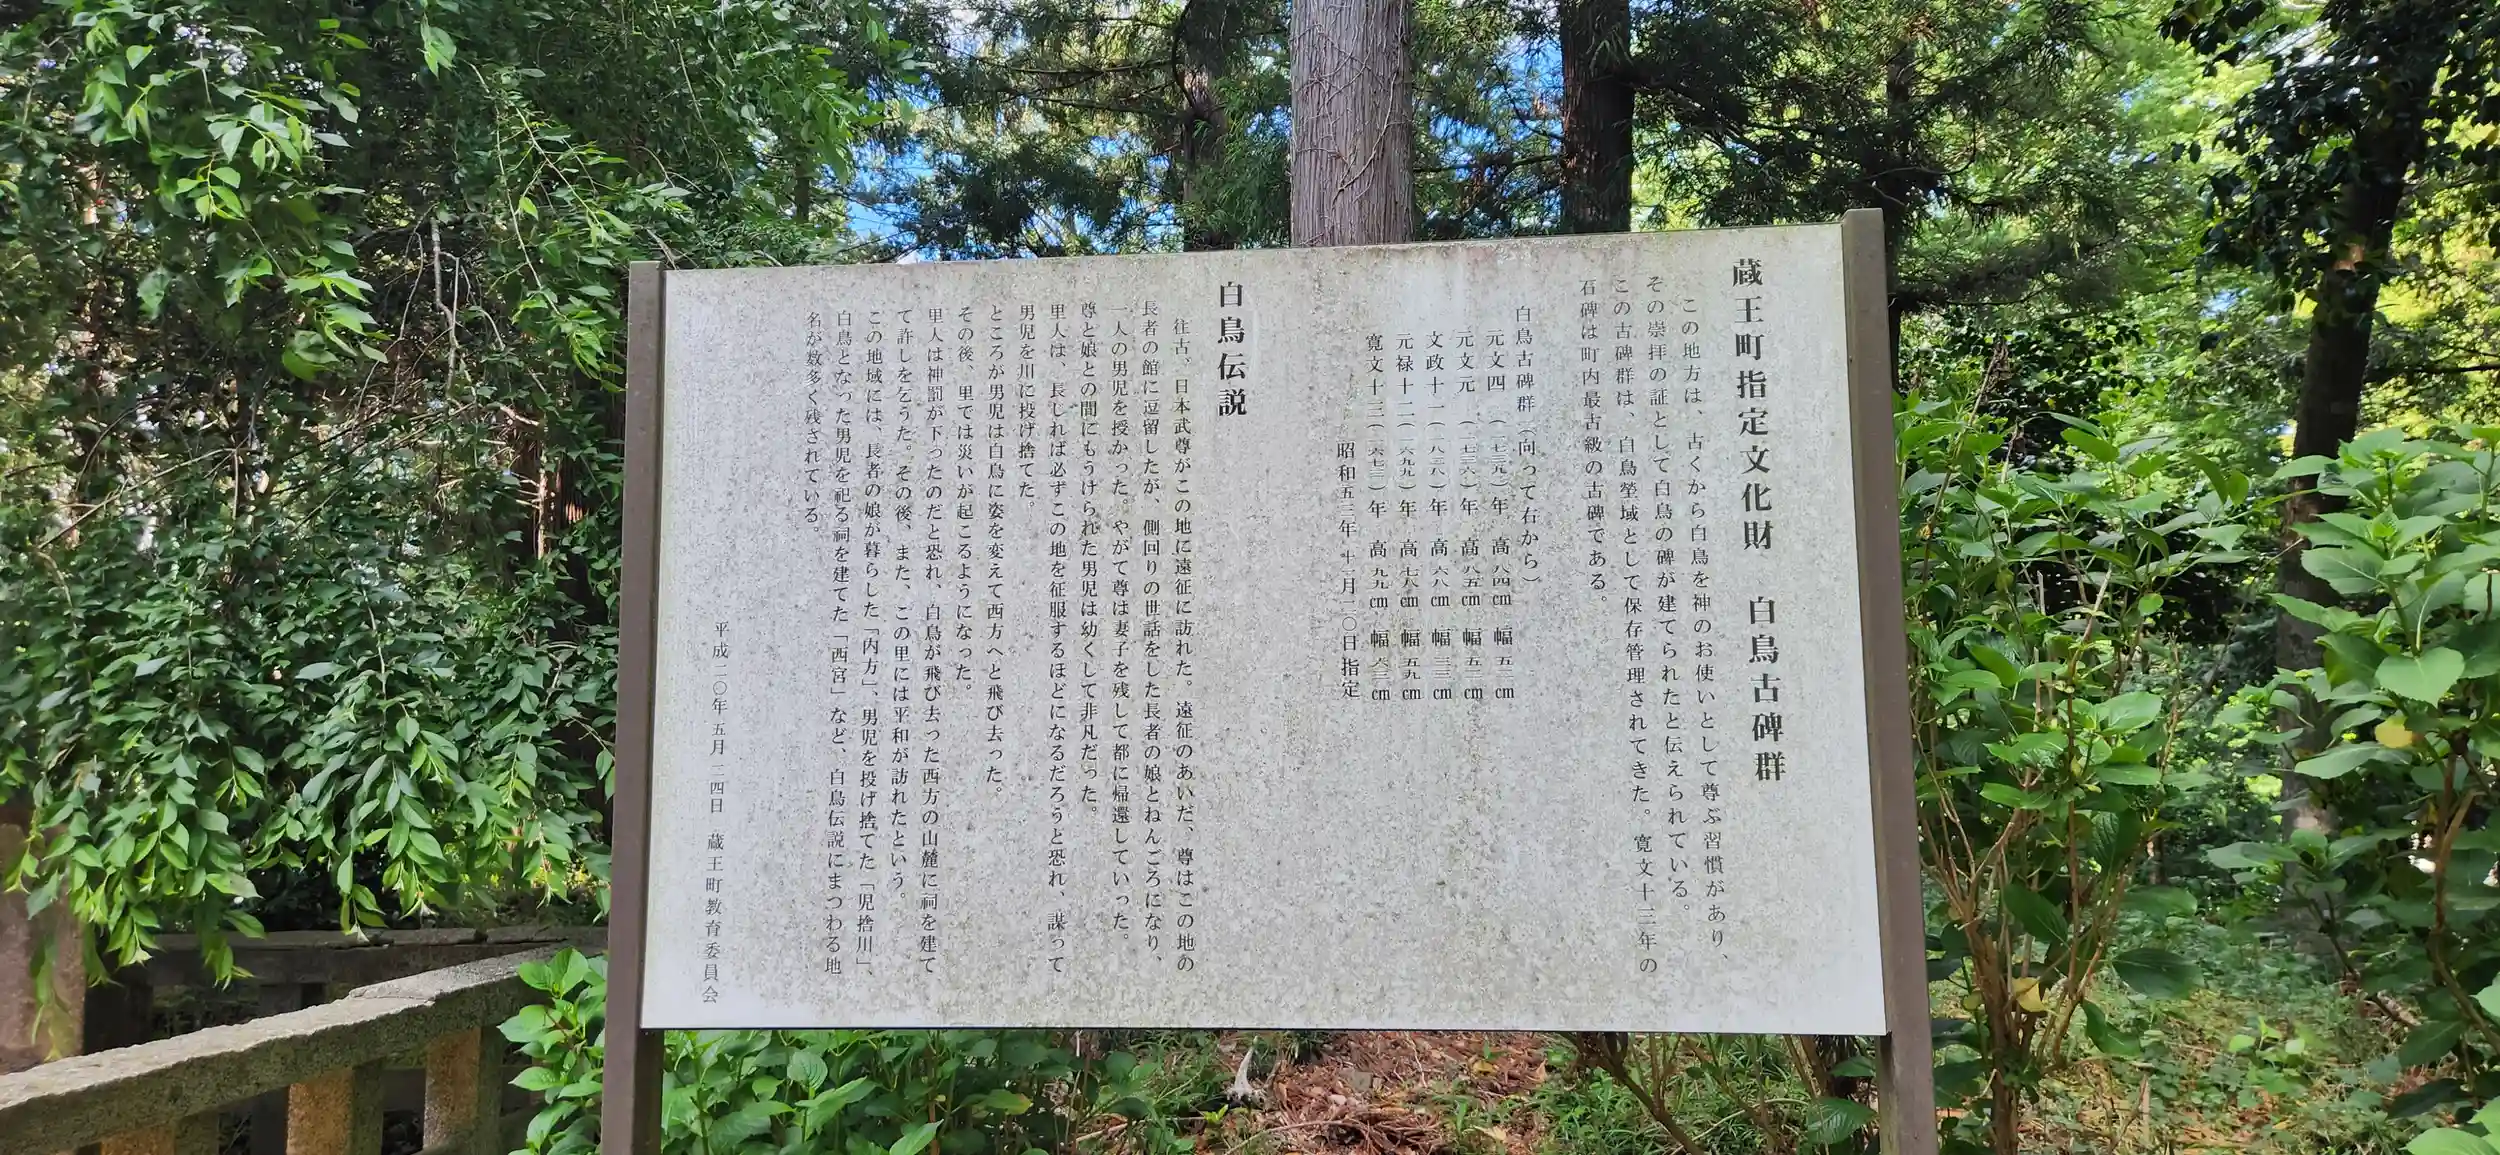 蔵王町指定文化財　白鳥古碑群
この地方は、古くから白鳥を神のお使いとして尊ぶ習慣があり、
その崇拝の証として白鳥の碑が建てられたと伝えられている。
この古碑群は、白鳥塋域として保存管理されてきた。寛文十三年の
石碑は町内最古級の古碑である。
白鳥古碑群（向って右から）
元文四（一七三九）年　高八四㎝　幅五二㎝
元文元（一七三六）年　高八五㎝　幅五二㎝
文政十一（一八二八）年　高六八㎝　幅三三㎝
元禄十二（一六九九）年　高七八㎝　幅五九㎝
寛文十三（一六七三）年　高九九㎝　幅六三㎝
昭和五三年　十一月二〇日指定
白鳥伝説
往古、日本武尊がこの地に遠征に訪れた。遠征のあいだ、尊はこの地の
長者の館に逗留したが、側回りの世話をした長者の娘とねんごろになり、
一人の男児を授かった。やがて尊は妻子を残して都に帰還していった。
尊と娘との間にもうけられた男児は幼くして非凡だった。
里人は、長しれば必ずこの地を征服するほどになるだろうと恐れ、謀って
男児を川に投げ捨てた。
ところが男児は白鳥に姿を変えて西方へと飛び去った。
その後、里では災いが起こるようになった。
里人は神罰が下ったのだと恐れ、白鳥が飛び去った西方の山麓に祠を建て
て許しを乞うた。その後、また、この里には平和が訪れたという。
この地域には、長者の娘が暮らした「内方」、男児を投げ捨てた「児捨川」、
白鳥となった男児を祀る祠を建てた「西宮」など、白鳥伝説にまつわる地
名が数多く残されている。
平成二〇年五月二四日　蔵王町教育委員会